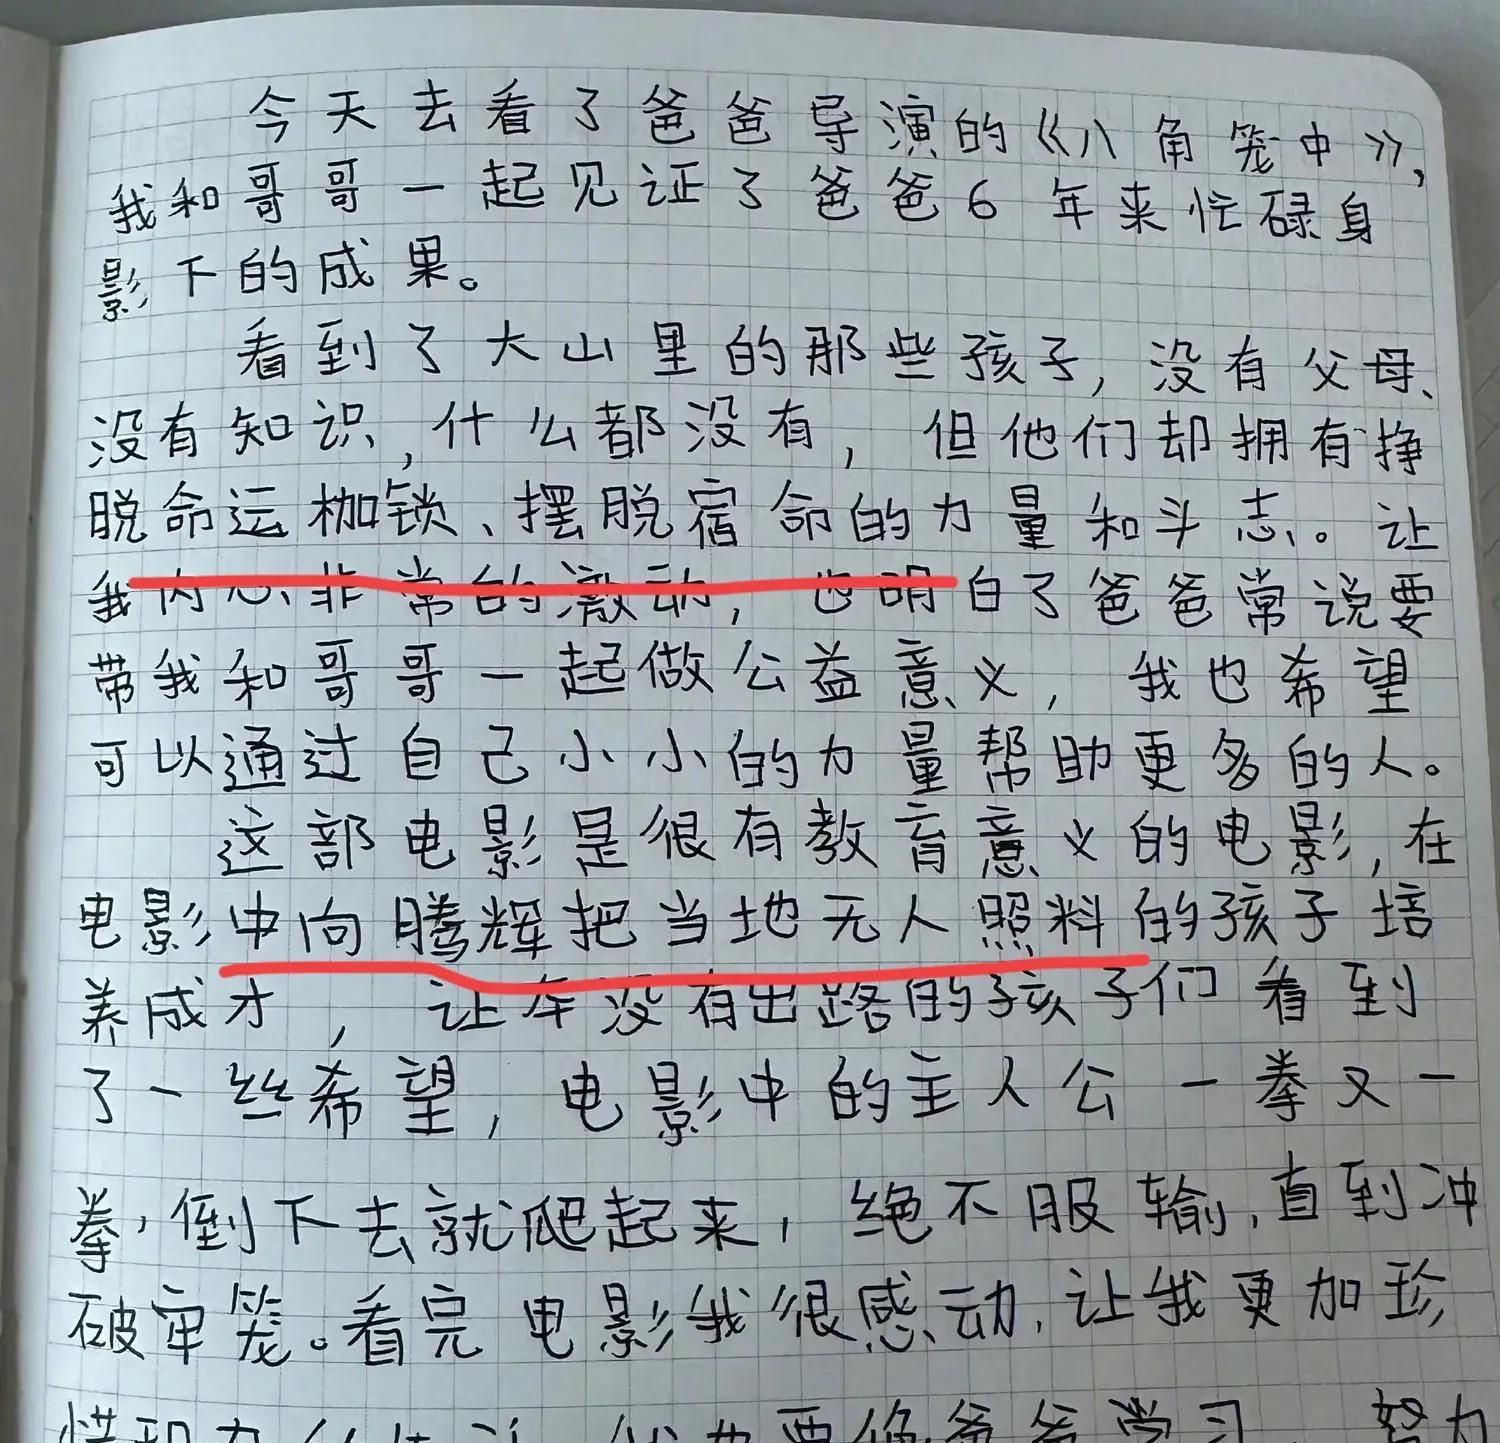 今天去看了爸爸导演的《八角笼中》,
我和哥哥一起见证了爸爸6年来忙碌身
影下的成果。
看到了大山里的那些孩子,没有父母、
没有知识,什么都没有,但他们却拥有挣
脱命运枷锁、摆脱宿命的力量和斗志。让
我内心非常的激动,也明白了爸爸常说要
带我和哥哥一起做公益意义,我也希望
可以通过自己小小的力量帮助更多的人。
这部电影是很有教育意义的电影,在
电影中向腾辉把当地无人照料的孩子培
养成才,让年没有出路的孩子们看到
了一丝希望,电影中的主人公一拳又一
拳,倒下去就爬起来,绝不服输,直到冲
破牢笼。看完电影我很感动,让我更加珍
爸爸学习 努力